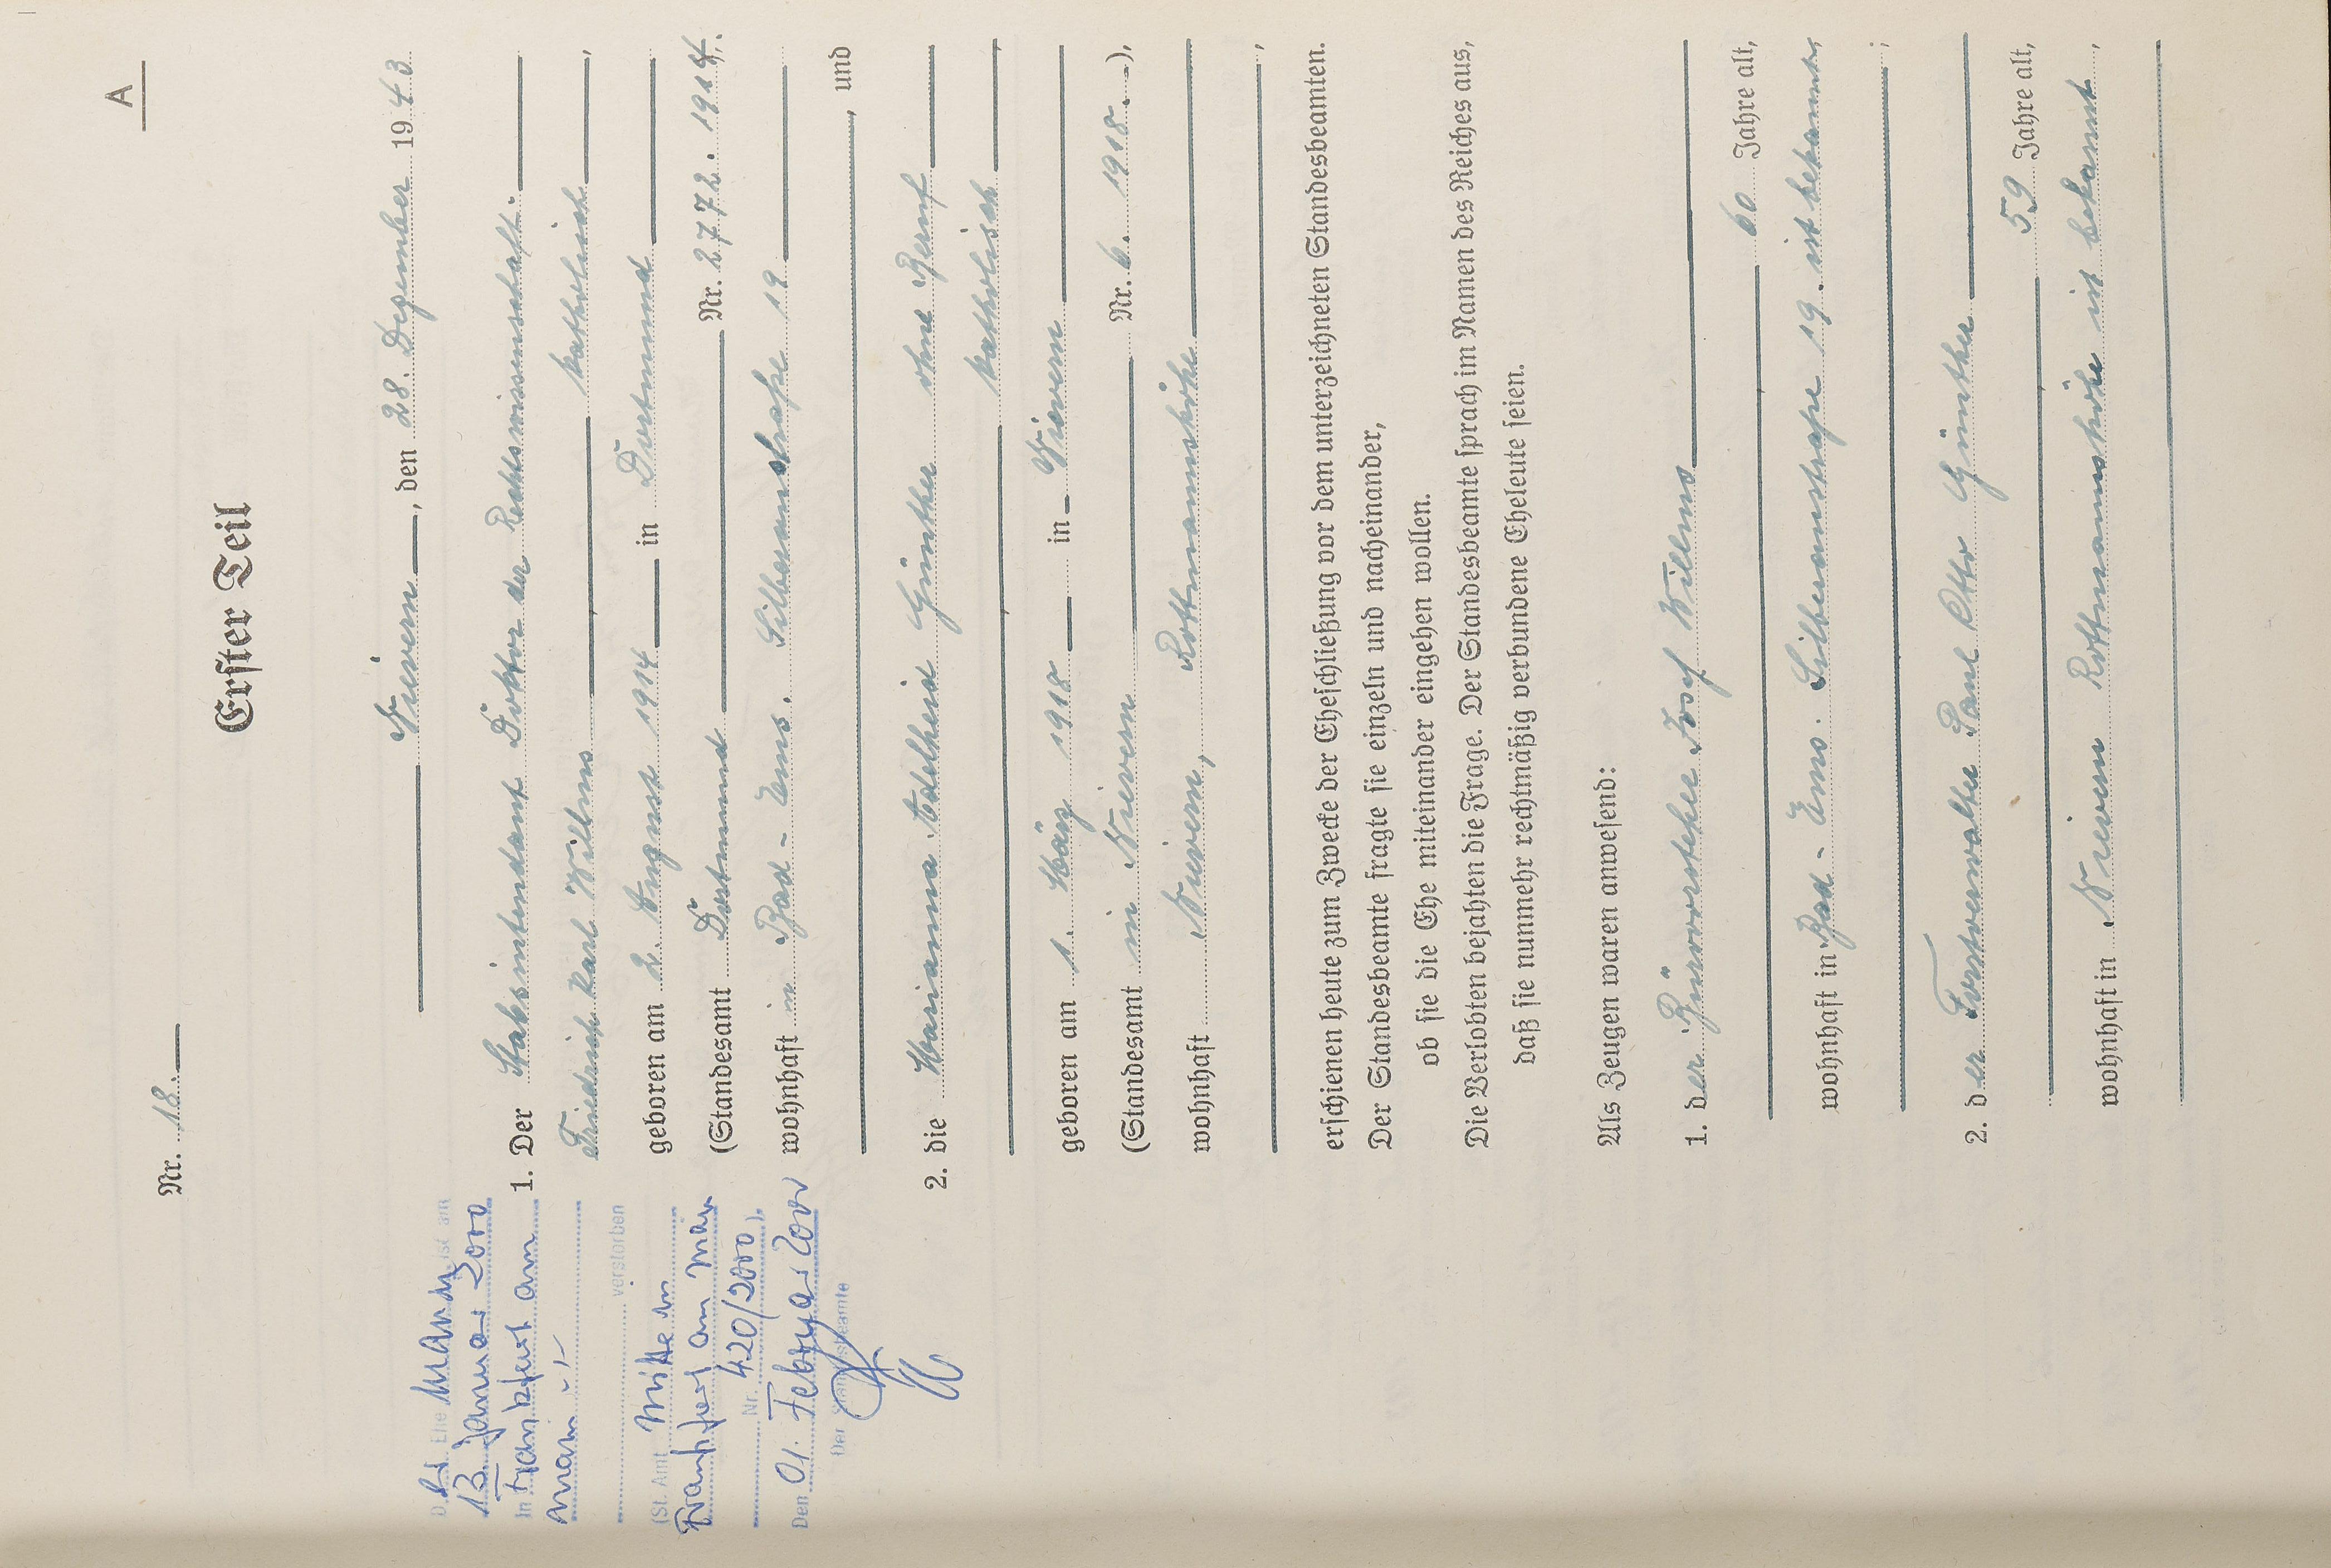 A
Nr. 18.
Erster Teil
Nievern, den 28. Dezember 1943
1. Der Stabsintendant Doktor der Rechtswissenschaft.
Friedrich Karl Willms, katholisch,
geboren am 2. August 1914 in Dortmund
(Standesamt Dortmund Nr. 2772. 1914.
wohnhaft in Bad-Ems. Silberaustraße 19
, und
2. die Marianna Adelheid Günther ohne Beruf
, katholisch,
geboren am 1. März 1918 in Nievern
(Standesamt in Nievern Nr. 6. 1918.),
wohnhaft Nievern, Rottmannshöhe
,
erschienen heute zum Zwecke der Eheschließung vor dem unterzeichneten Standesbeamten.
Der Standesbeamte fragte sie einzeln und nacheinander,
ob sie die Ehe miteinander eingehen wollen.
Die Verlobten bejahten die Frage. Der Standesbeamte sprach im Namen des Reiches aus,
daß sie nunmehr rechtmäßig verbundene Eheleute seien.
Als Zeugen waren anwesend:
1. der Bürovorsteher Josef Willms
, 60 Jahre alt,
wohnhaft in Bad-Ems. Silberaustraße 19. ist bekannt,
;
2. der Forstverwalter Paul Otto Günther
, 59 Jahre alt,
wohnhaft in Nievern Rottmannshöhe ist bekannt,
Der Ehemann ist am
13. Januar 2000
in Frankfurt am
Main
verstorben
(St. Amt Mitte in
Frankfurt am Main
Nr. 420/2000).
Den 01. Februar 2000
Der Standesbeamte